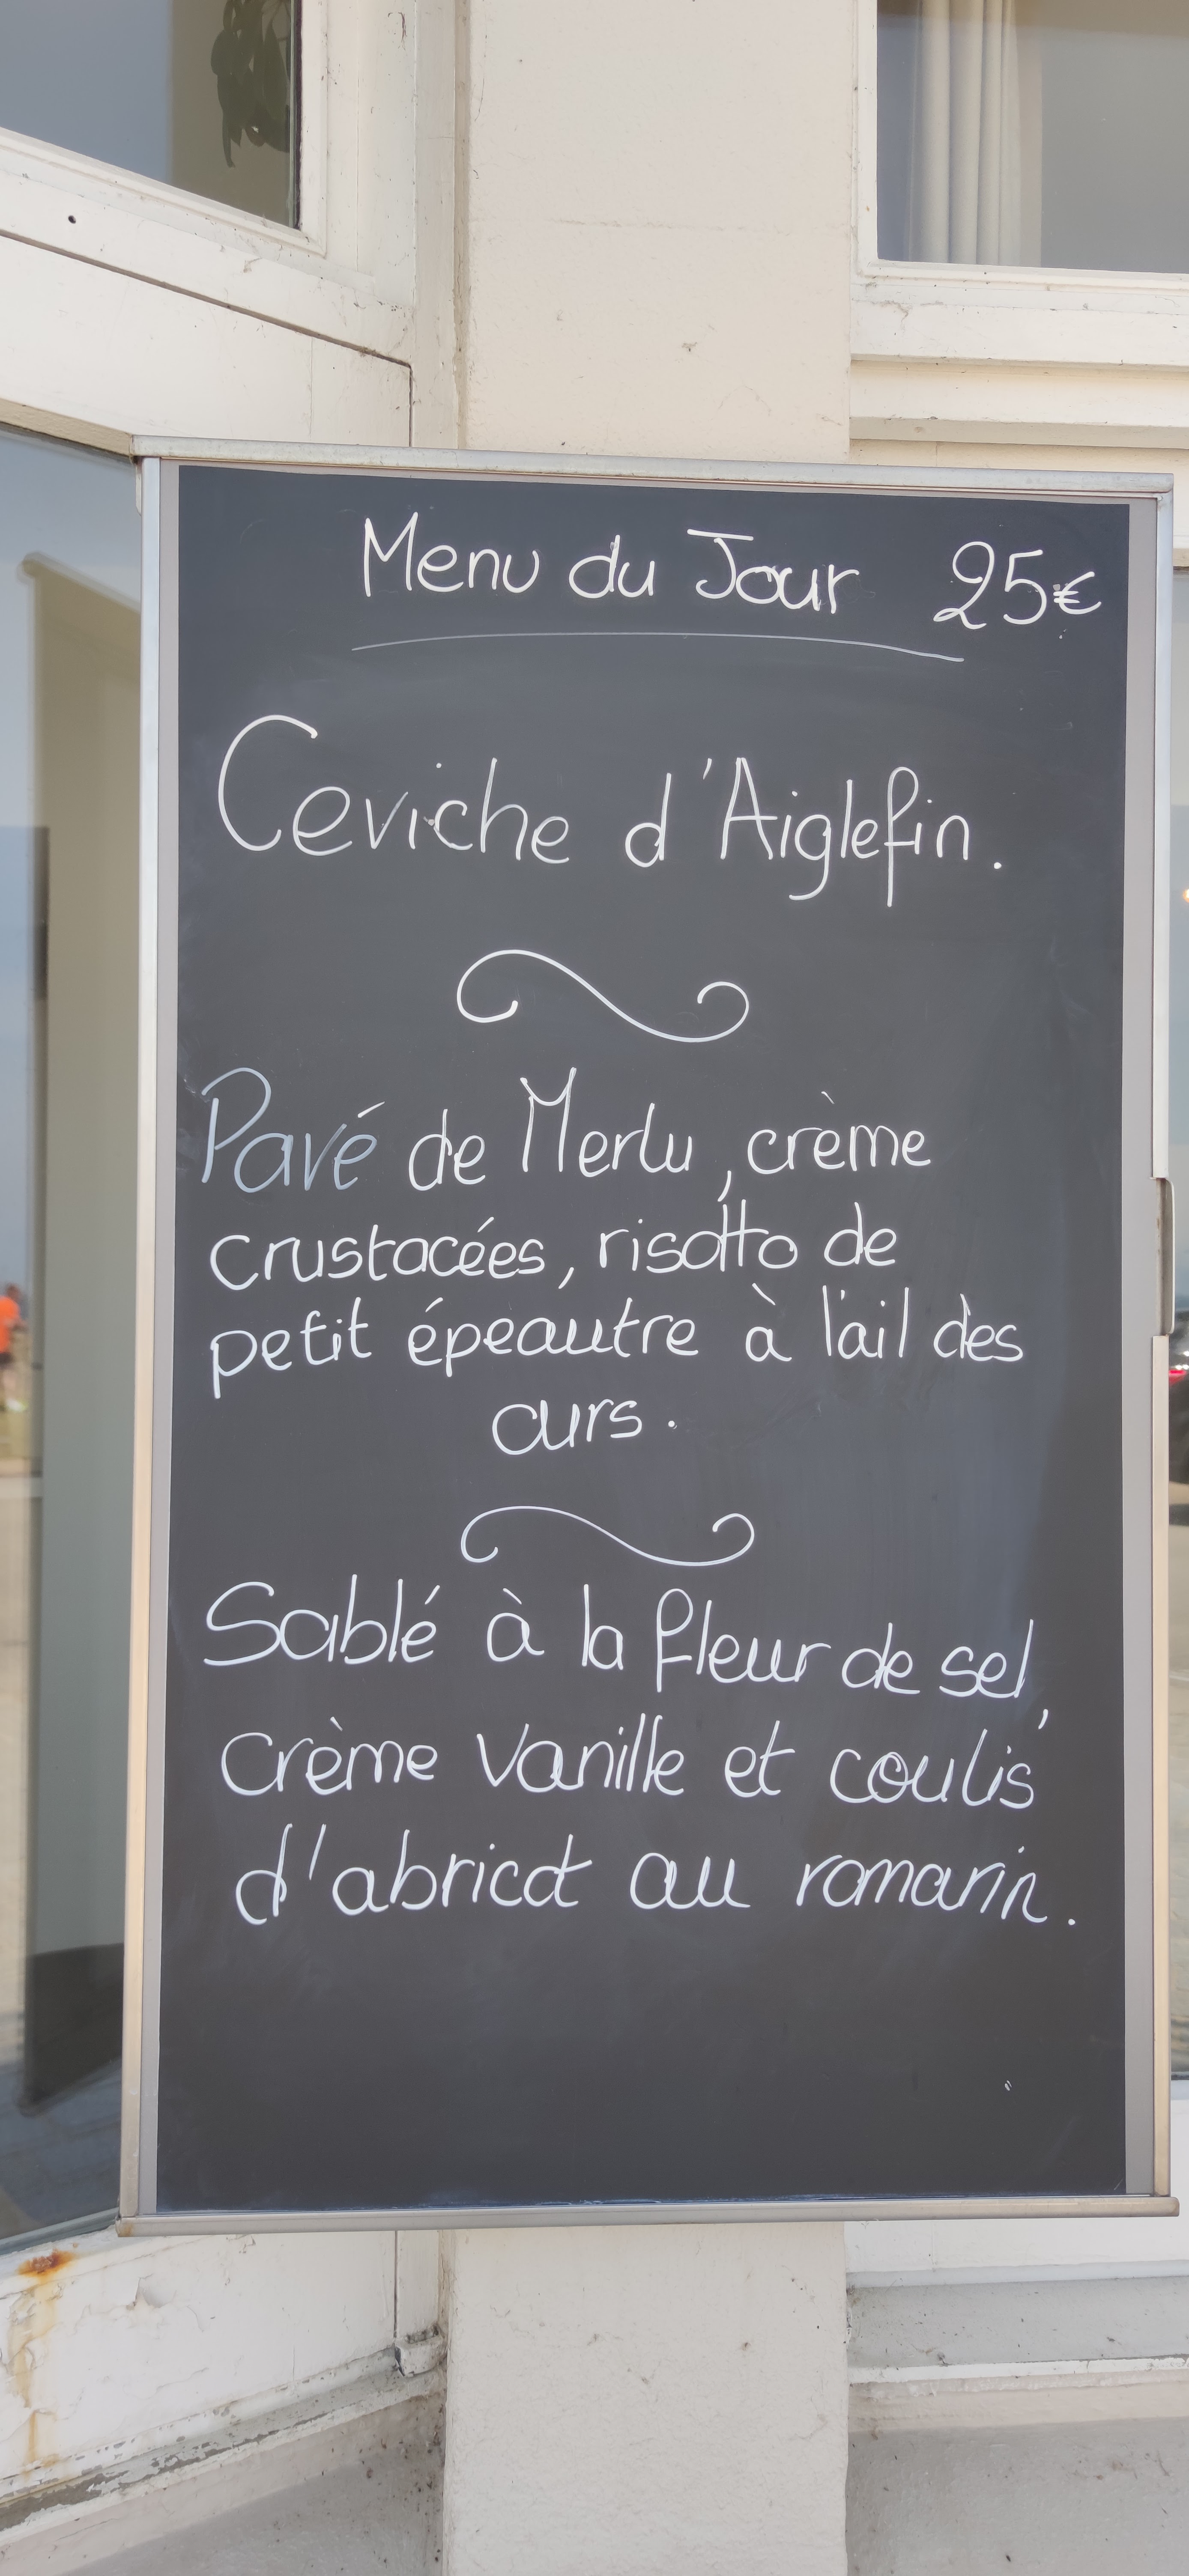 Menu du Jour 25€
Ceviche d'Aiglefin.
Pavé de Merlu, crème
crustacées, risotto de
petit épeautre à l'ail des
ours.
Sablé à la fleur de sel,
Crème Vanille et coulis
d'abricot au romarin.